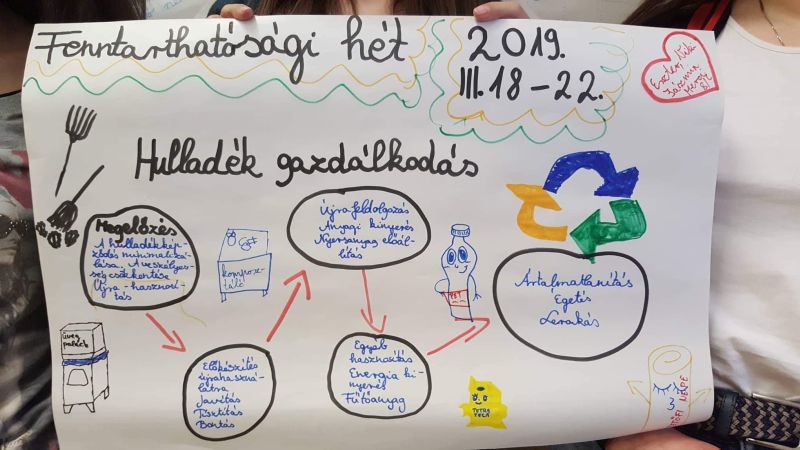 Fenntarthatósági hét
2019.
III.18-22.
Eszter, Niki
Jázmin
Hulladék gazdálkodás
Megelőzés
A hulladékkép-
ződés minimalizá-
lása. A veszélyes-
ség csökkentése
Újra-hasznosí-
tás
komposz-
táló
Újrafeldolgozás
Anyagi kinyerés
Nyersanyag előál-
lítás
PET
Ártalmatlanítás
Égetés
Lerakás
üveg
palack
Előkészítés
újrahaszná-
latra
Javítás
Tisztítás
Bontás
Egyéb
hasznosítás
Energia ki-
nyerés
Fűtőanyag
TETRA
PACK